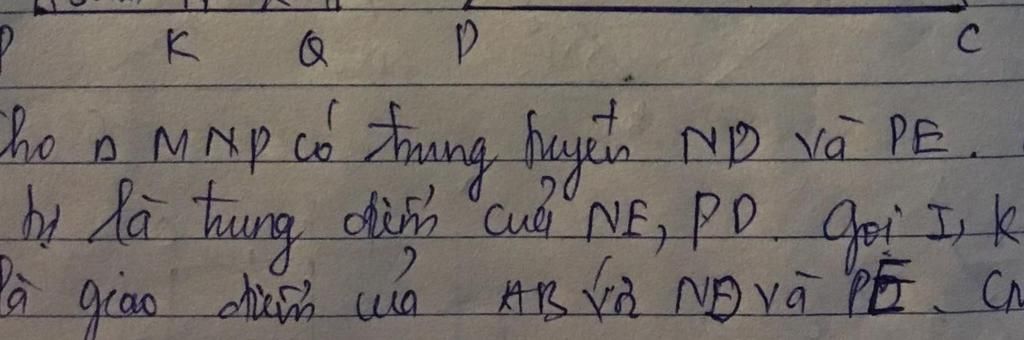 P K Q D C
Cho Δ MNP có trung tuyến ND và PE.
là trung điểm của NE, PD. Gọi I, K
là giao điểm của AB với ND và PE. CM